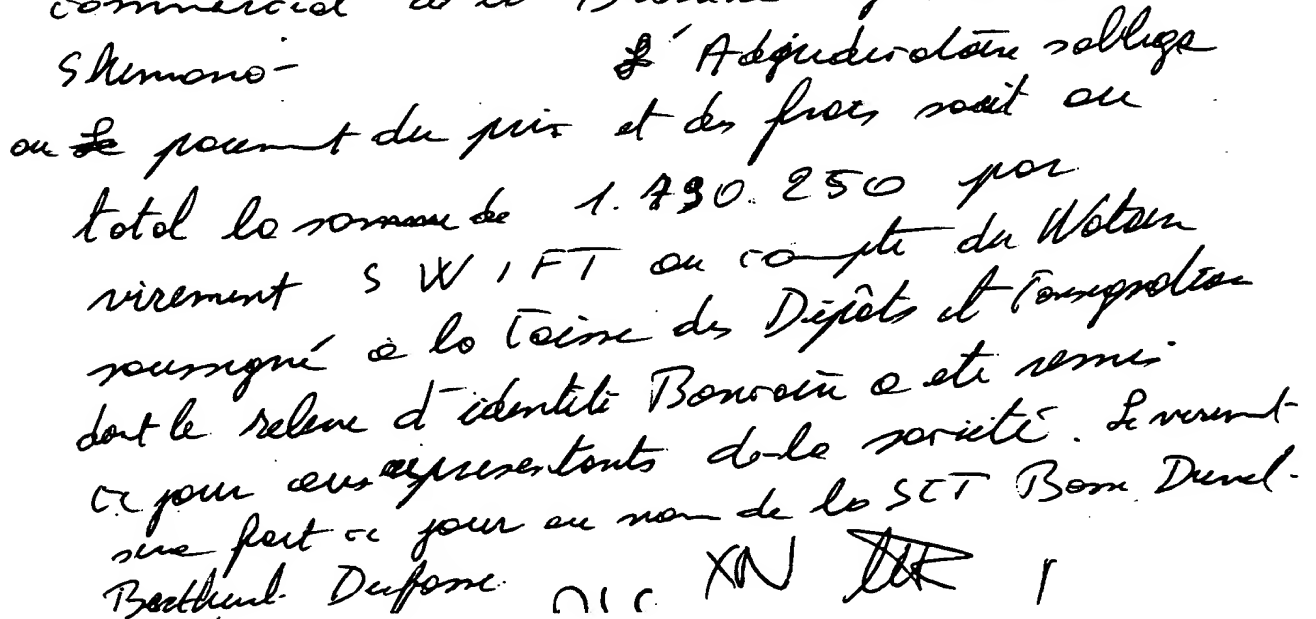 commercial
Shimano - L'Adjudicataire s'oblige
au paiement du prix et des frais soit au
total la somme de 1.790.250 par
virement SWIFT au compte du Notaire
soussigné à la Caisse des Dépôts et Consignation
dont le releve d'identité Bancaire a eté remis
ce jour aux representants de la société. Le virement
sera fait ce jour au nom de la SCT
Dufosse XN